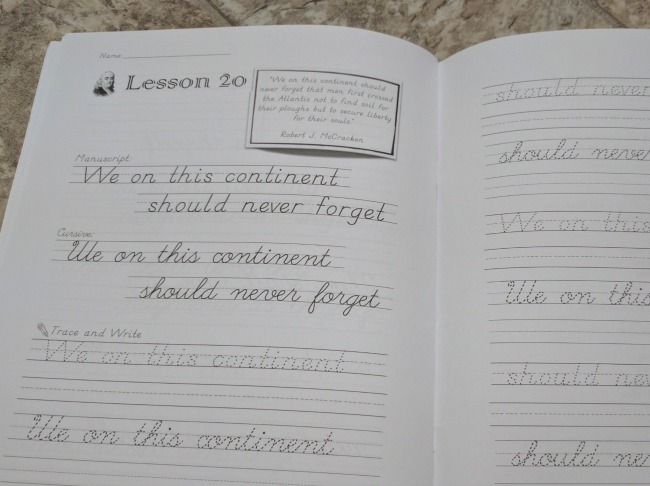 Name:
Lesson 20
"We on this continent should
never forget that men first crossed
the Atlantic not to find soil for
their ploughs but to secure liberty
for their souls."
Robert J. McCracken
Manuscript:
We on this continent
should never forget
Cursive:
We on this continent
should never forget
Trace and Write
We on this continent
We on this continent
should never
should never
We on this
We on this
should nev
should ne